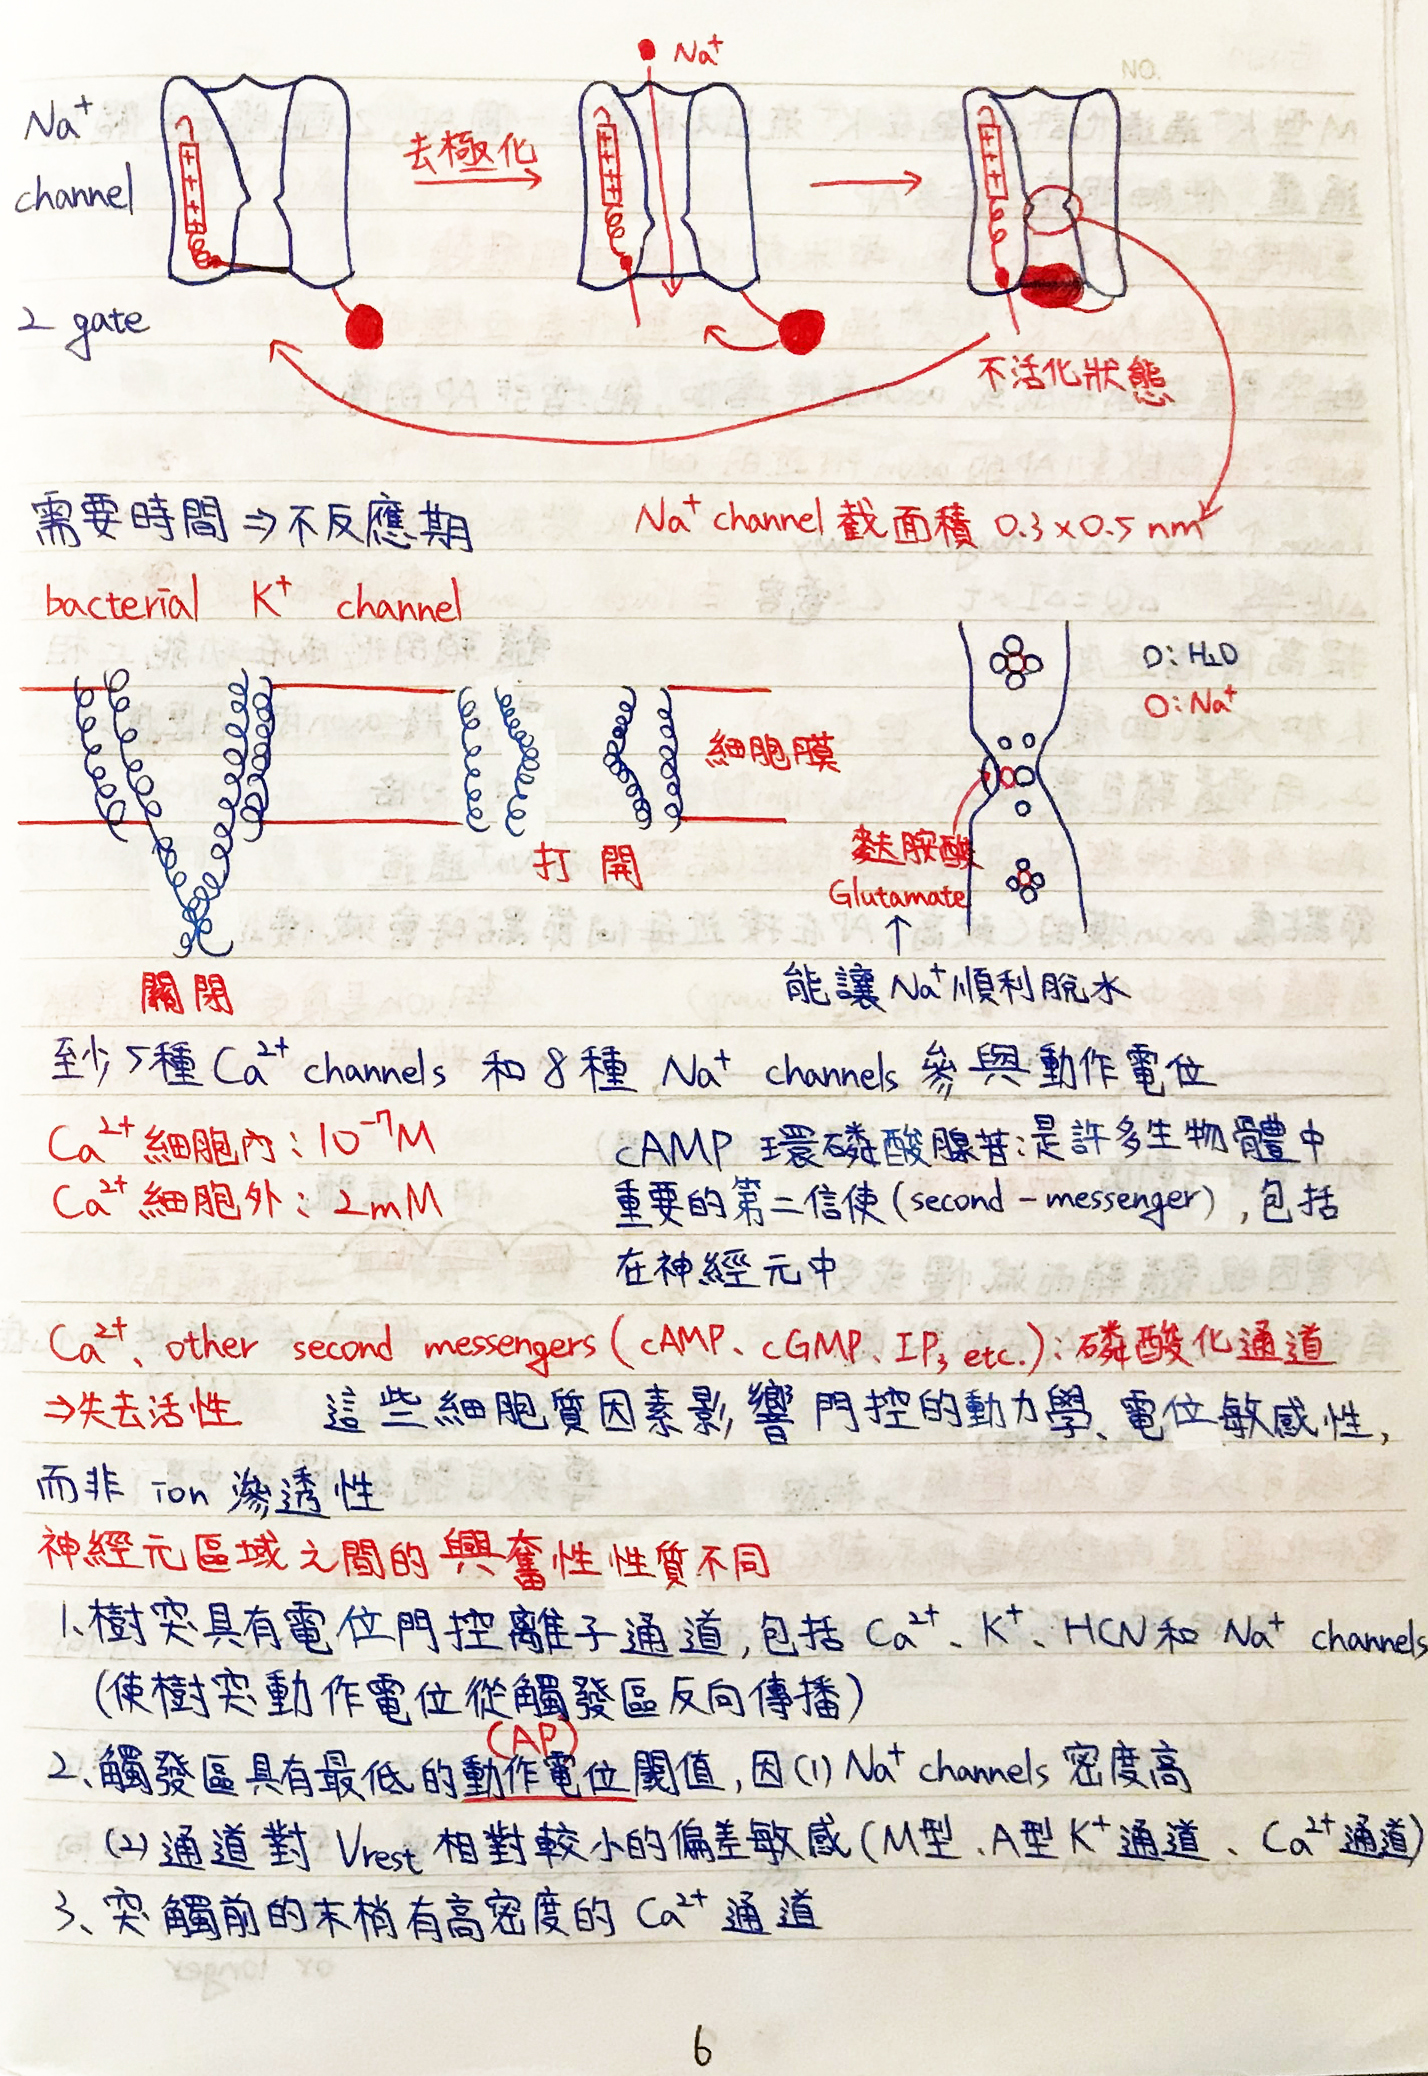 Na⁺
Na⁺
channel
去極化
2 gate
不活化狀態
需要時間⇒不反應期
Na⁺ channel 截面積 0.3×0.5 nm
bacterial K⁺ channel
O:H₂O
O:Na⁺
細胞膜
打開
麩胺酸
Glutamate
↑
關閉
能讓Na⁺順利脫水
至少5種Ca²⁺ channels 和8種 Na⁺ channels 參與動作電位
Ca²⁺細胞內:10⁻⁷M
Ca²⁺細胞外:2mM
cAMP 環磷酸腺苷:是許多生物體中
重要的第二信使(second-messenger),包括
在神經元中
Ca²⁺、other second messengers(cAMP、cGMP、IP₃ etc.):磷酸化通道
⇒失去活性 這些細胞質因素影響門控的動力學、電位敏感性,
而非 ion 滲透性
神經元區域之間的興奮性性質不同
1、樹突具有電位門控離子通道,包括 Ca²⁺、K⁺、HCN和 Na⁺ channels
(使樹突動作電位從觸發區反向傳播)
(AP)
2、觸發區具有最低的動作電位閾值,因(1)Na⁺ channels 密度高
(2)通道對 Vrest 相對較小的偏差敏感(M型、A型K⁺通道、Ca²⁺通道)
3、突觸前的末梢有高密度的 Ca²⁺通道
6